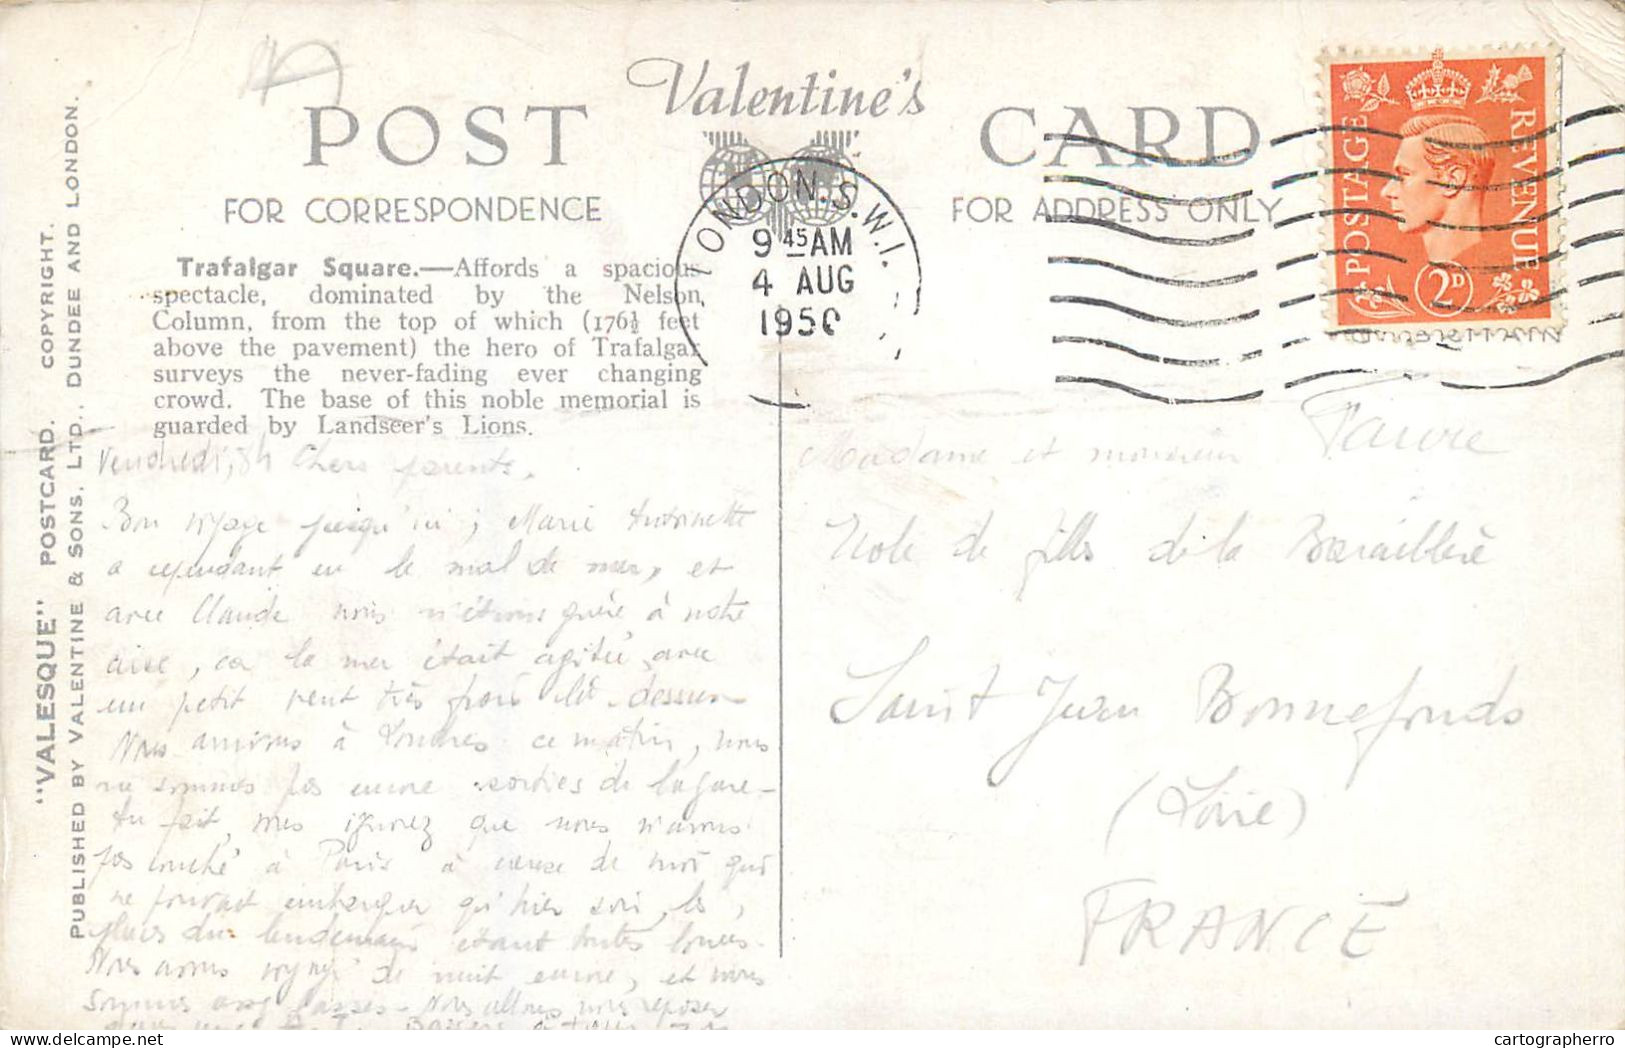 POST Valentine's CARD
FOR CORRESPONDENCE
FOR ADDRESS ONLY
POSTAGE
REVENUE
2D
LONDON.S.W.1.
9 45 AM
4 AUG
1950
Trafalgar Square.—Affords a spacious
spectacle, dominated by the Nelson
Column, from the top of which (176½ feet
above the pavement) the hero of Trafalgar
surveys the never-fading ever changing
crowd. The base of this noble memorial is
guarded by Landseer's Lions.
"VALESQUE" POSTCARD. COPYRIGHT.
PUBLISHED BY VALENTINE & SONS, LTD., DUNDEE AND LONDON.
Vendredi, Chers parents.
Bon voyage jusqu'ici ; Marie Antoinette
a cependant eu le mal de mer, et
avec Claude nous n'étions guère à notre
aise, car la mer était agitée, avec
un petit vent très frais là-dessus
Nous arrivons à Londres ce matin, nous
ne sommes pas encore sorties de la gare -
Au fait, vous ignorez que nous n'avons
pas couché à Paris à cause de moi qui
ne pouvait embarquer qu'hier soir, les
places du lendemain étant toutes louées.
Nous avons voyagé de nuit encore, et nous
sommes assez lasses - Nous allons nous reposer
Madame et monsieur Faure
Ecole de filles de la Baraillère
Saint Jean Bonnefonds
(Loire)
FRANCE
cartographerro